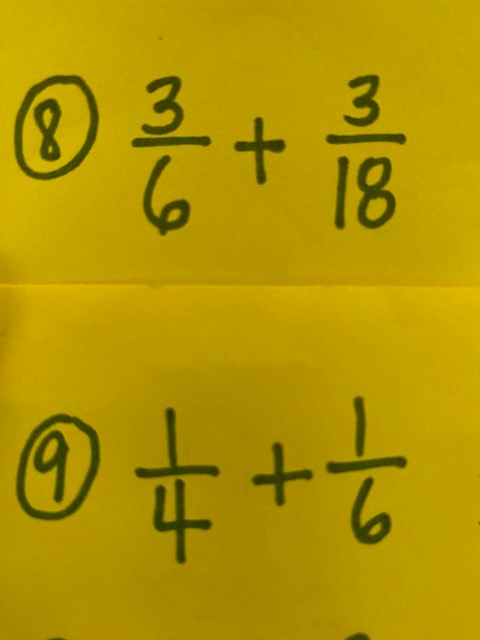 ⑧ 3/6 + 3/18
⑨ 1/4 + 1/6